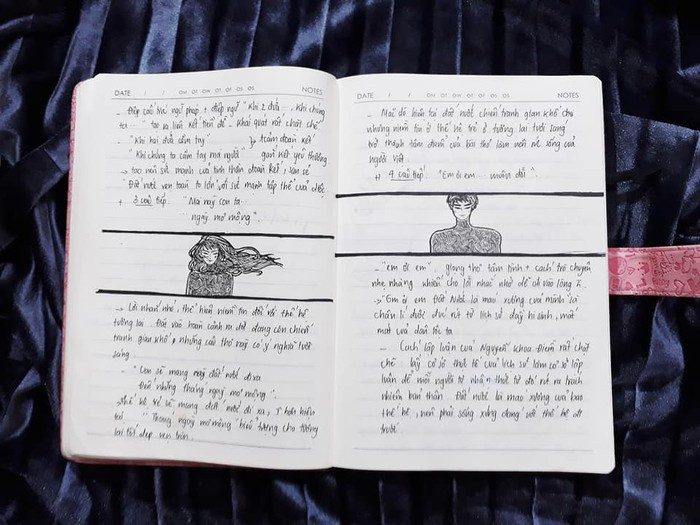 DATE / / CN T2 T3 T4 T5 T6 T7 NOTES
- Điệp cấu trúc ngữ pháp + điệp ngữ "Khi 2 đứa ... Khi chúng
ta tạo ra liên kết trần đề - khái quát rất chặt chẽ
- "Khi hai đứa cầm tay" → t/cảm đoàn kết
"Khi chúng ta cầm tay mọi người" gắn kết yêu thương
→ tạo nên sức mạnh của tinh thần đoàn kết,
Đất nước vẹn toàn to lớn, với sức mạnh tập thể của dtộc
+ 3 câu tiếp: "Mai này con ta
ngày mơ mộng".
→ Lời nhắn nhủ, thể hiện niềm tin đối với thế hệ
tương lai. Đất vào hoàn cảnh ra đời đang còn chiến
tranh gian khổ, những câu thơ này có ý nghĩa tươi
sáng
- "Con sẽ mang này đất nước đi xa
Đến những tháng ngày mơ mộng".
Thế hệ trẻ sẽ mang đất nước đi xa,
lai "Tháng ngày mơ mộng" biểu tượng cho tương
lai tốt đẹp vẹn tròn.
DATE / / CN T2 T3 T4 T5 T6 T7 NOTES
- Mặc dù hiện tại đất nước chiến tranh gian khổ cho
nhưng niềm tin ở thế hệ trẻ ở tương lai tươi sáng
trở thành tâm điểm của bài thơ làm nên vẻ sống của
người Việt.
+ 4 câu tiếp: "Em ơi em ... muôn đời".
- "em ơi em" giọng thơ tâm tình + cách trò chuyện
nhẹ nhàng khiến cho lời nhắc nhở dễ đi vào lòng
→ Em ơi em Đất Nước là máu xương của mình là
chân lí được đúc rút từ lịch sử đầy hi sinh, mất
mát của dân tộc ta
- Cách lập luận của Nguyễn Khoa Điềm rất chặt
chẽ: lấy cơ sở thực tế của lịch sử làm cơ sở lập
luận để mỗi người tự nhận thức từ đó rút ra trách
nhiệm bản thân. Đất nước là máu xương của bao
thế hệ, nên phải sống xứng đáng với thế hệ đi
trước